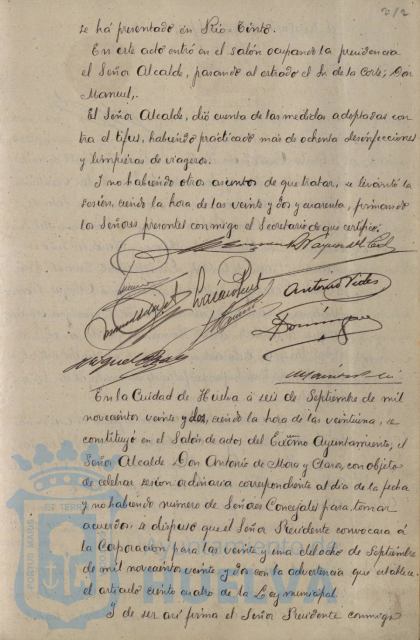 212
se há presentado en Rio Tinto.
En este acto entró en el salón ocupando la presidencia
el Señor Alcalde, pasando al estrado el Sr. de la Corte, Don
Manuel,.
El Señor Alcalde, dió cuenta de las medidas adoptadas con
tra el tifus, habiendo practicado mas de ochenta desinfecciones
y limpiezas de viageros.
Y no habiendo otros asuntos de que tratar, se levantó la
sesión, siendo la hora de las veinte y dos y cuarenta, firmando
los Señores presentes conmigo el Secretario de que certifico.
Antonio Vides
Domínguez
Miguel
En la Ciudad de Huelva á seis de Septiembre de mil
novecientos veinte y dos, siendo la hora de las veintiuna, se
constituyó en el Salón de actos del Excmo Ayuntamiento, el
Señor Alcalde Don Antonio de Mora y Claros, con objeto
de celebrar sesión ordinaria correspondiente al dia de la fecha
y no habiendo número de Señores Concejales para tomar
acuerdos se dispuso que el Señor Presidente convocara á
la Corporación para las veinte y una del ocho de Septiembre
de mil novecientos veinte y dos con la advertencia que establece
el artículo ciento cuatro de la Ley municipal
Y de ser así firma el Señor Presidente conmigo
PORTUS MARIS ET TERRAE
Ayuntamiento de
HUELVA